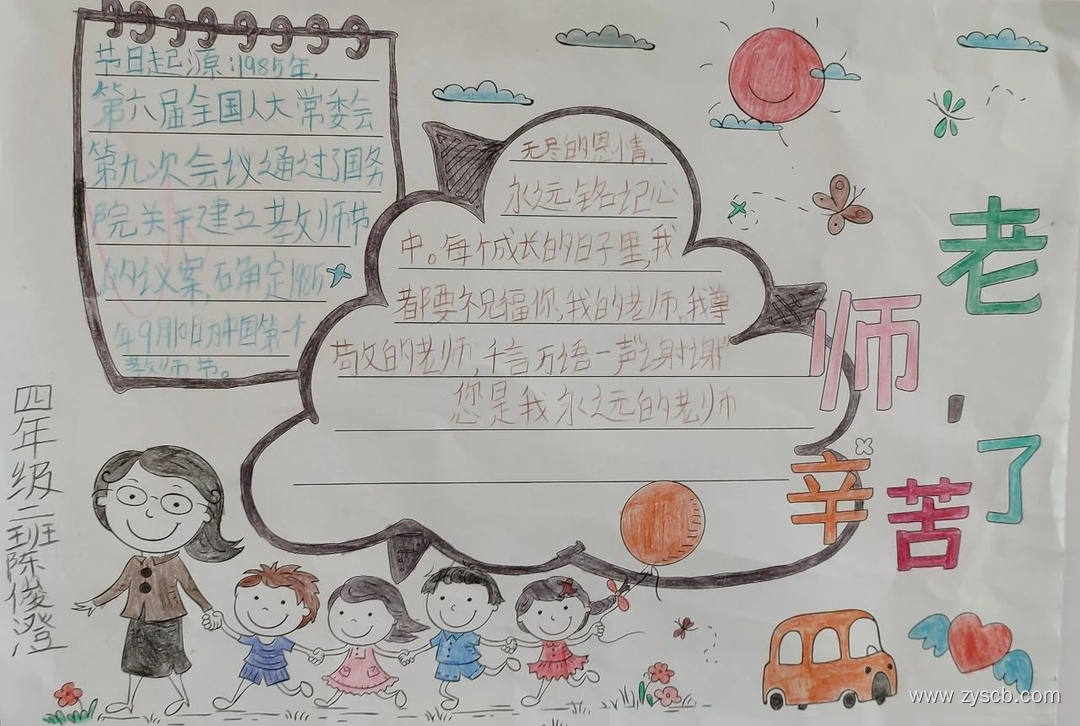 节日起源:1985年,
第六届全国人大常委会
第九次会议通过了国务
院关于建立教师节
的议案,石审定1985
年9月10日为中国第一个
教师节。
无尽的恩情,
永远铭记心
中。每个成长的日子里,我
都要祝福你,我的老师,我尊
敬的老师,千言万语一声谢谢
您是我永远的老师
老师,
辛苦了
四年级二班陈俊澄
www.zyscb.com